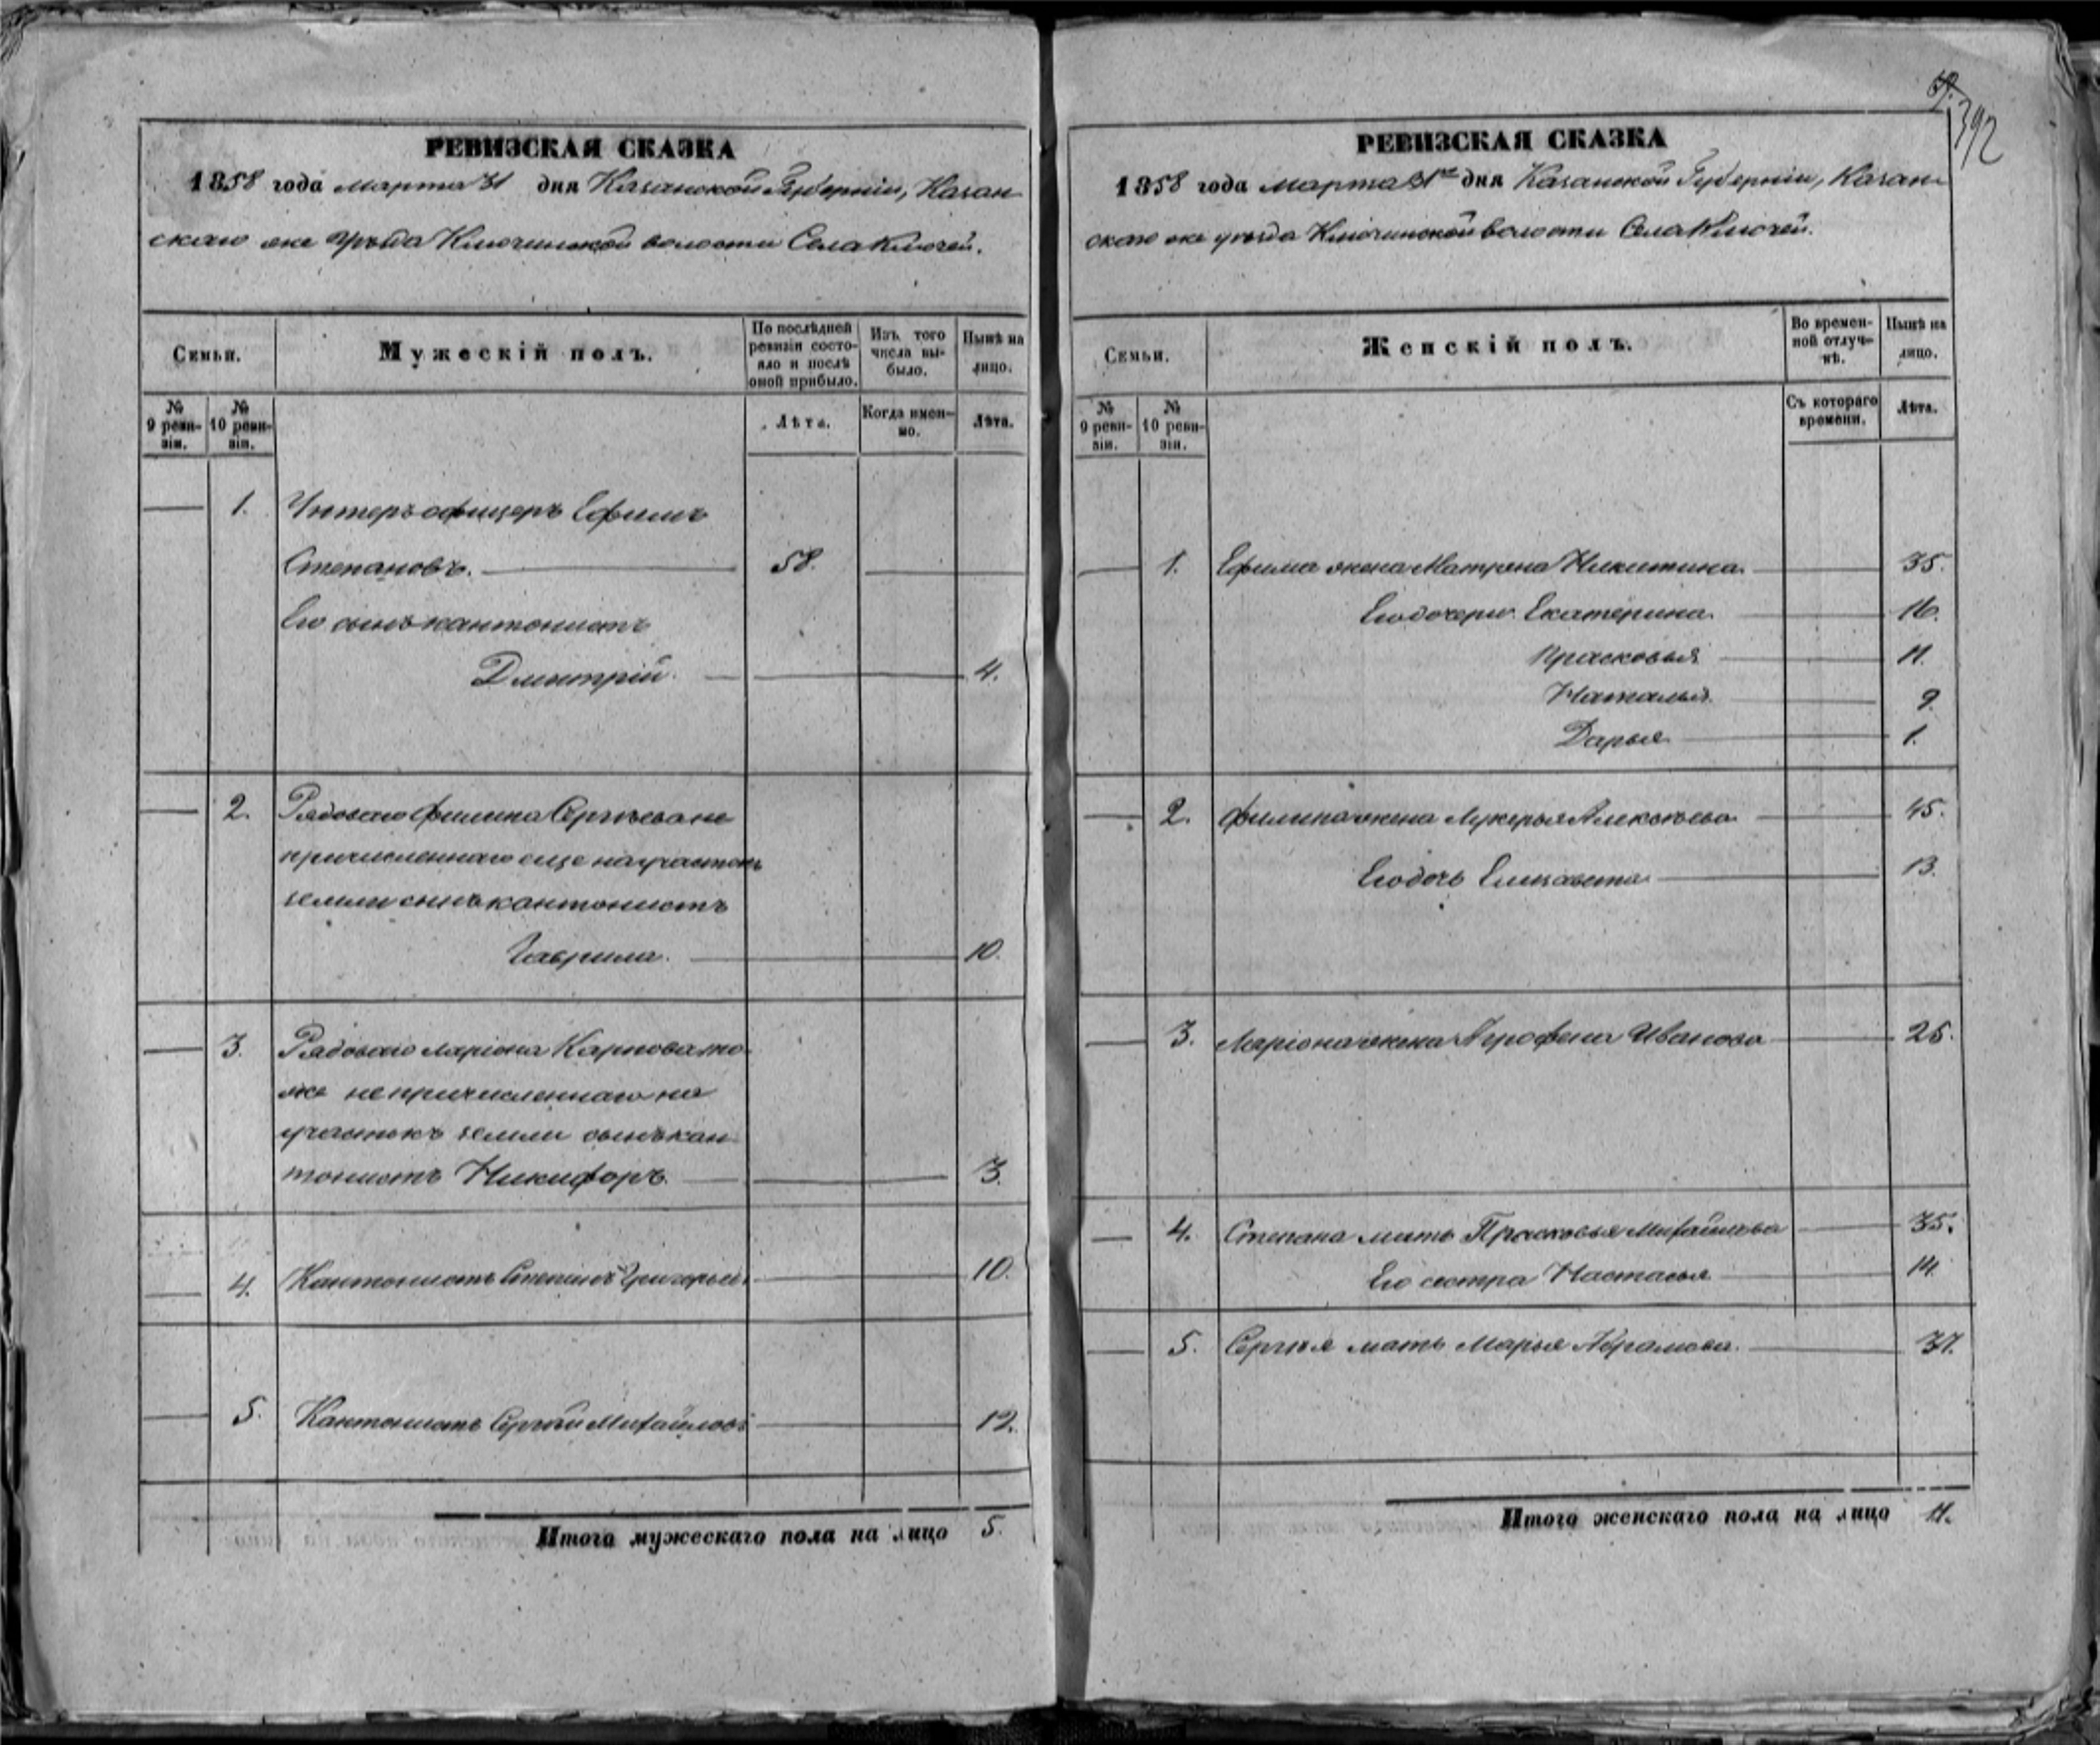 РЕВИЗСКАЯ СКАЗКА
1858 года марта 31 дня Казанской Губерніи, Казан
скаго же Уѣзда Ключинской волости Села Ключей.
Семьи.
Мужескій полъ.
По послѣдней ревизіи состояло и послѣ оной прибыло.
Изъ того числа выбыло.
Нынѣ на лицо.
№ 9 ревизіи.
№ 10 ревизіи.
Лѣта.
Когда именно.
Лѣта.
1. Унтеръ офицеръ Ефимъ
Степановъ. 58.
Его сынъ кантонистъ
Дмитрій. 4.
2. Рядоваго Филипа Сергѣева не
причисленнаго еще на участокъ
земли сынъ кантонистъ
Гаврила. 10.
3. Рядоваго Ларіона Карпова то
же не причисленнаго на
участокъ земли сынъ кан
тонистъ Никифоръ. 3.
4. Кантонистъ Степанъ Григорьевъ 10.
5. Кантонистъ Сергѣй Михайловъ 12.
Итого мужескаго пола на лицо 5.
392
РЕВИЗСКАЯ СКАЗКА
1858 года марта 31го дня Казанской Губерніи, Казан
скаго же уѣзда Ключинской волости Села Ключей.
Семьи.
Женскій полъ.
Во временной отлучкѣ.
Нынѣ на лицо.
№ 9 ревизіи.
№ 10 ревизіи.
Съ котораго времени.
Лѣта.
1. Ефима жена Матрена Никитина. 35.
Его дочери Екатерина. 16.
Прасковья 11.
Наталья 9.
Дарья 1.
2. Филипа жена Лукерья Алексѣева 45.
Его дочь Елисавета 13.
3. Ларіона жена Агрофена Иванова 25.
4. Степана мать Прасковья Михайлова 35.
Его сестра Настасья 14.
5. Сергѣя мать Марья Абрамова. 37.
Итого женскаго пола на лицо 11.